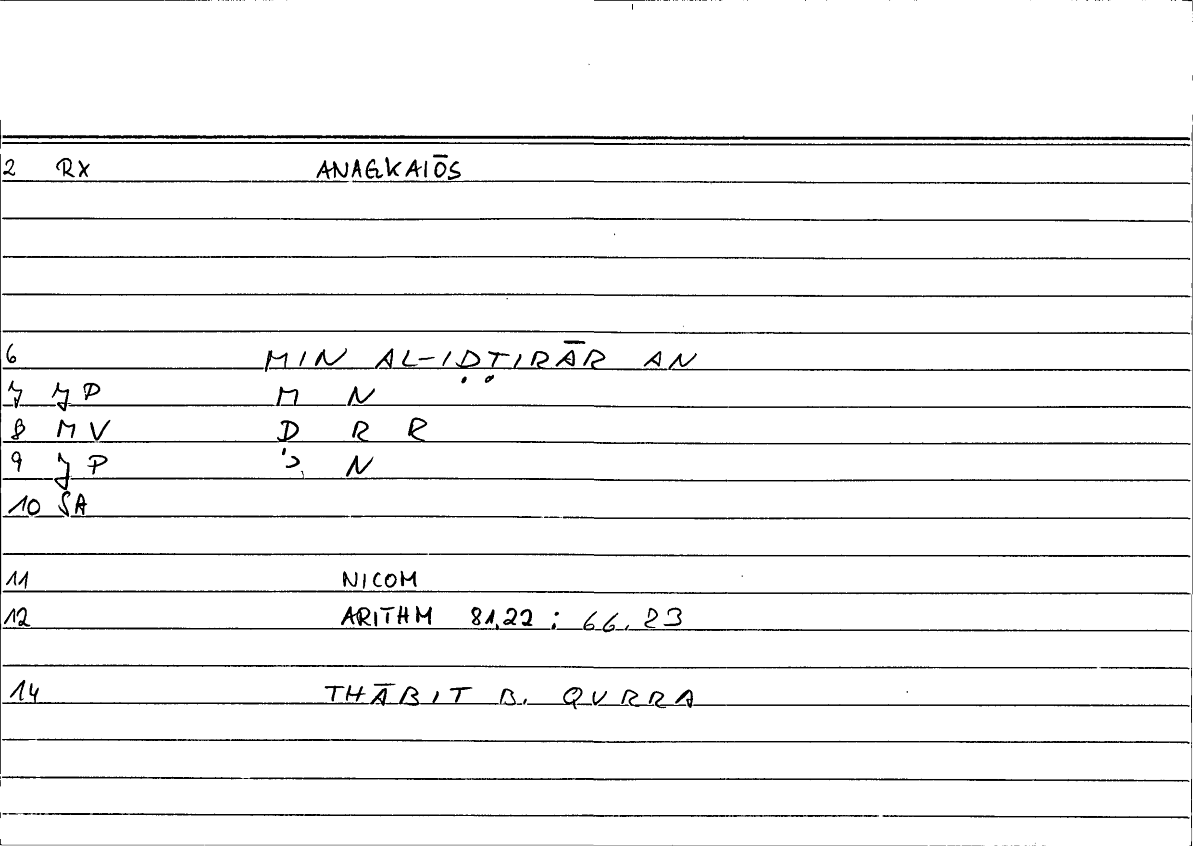 2 RX ANAGKAIŌS
6 MIN AL-IḌṬIRĀR AN
7 JP M N
8 MV D R R
9 JP ʾ N
10 SA
11 NICOM
12 ARITHM 81,22 : 66.23
14 THĀBIT B. QURRA